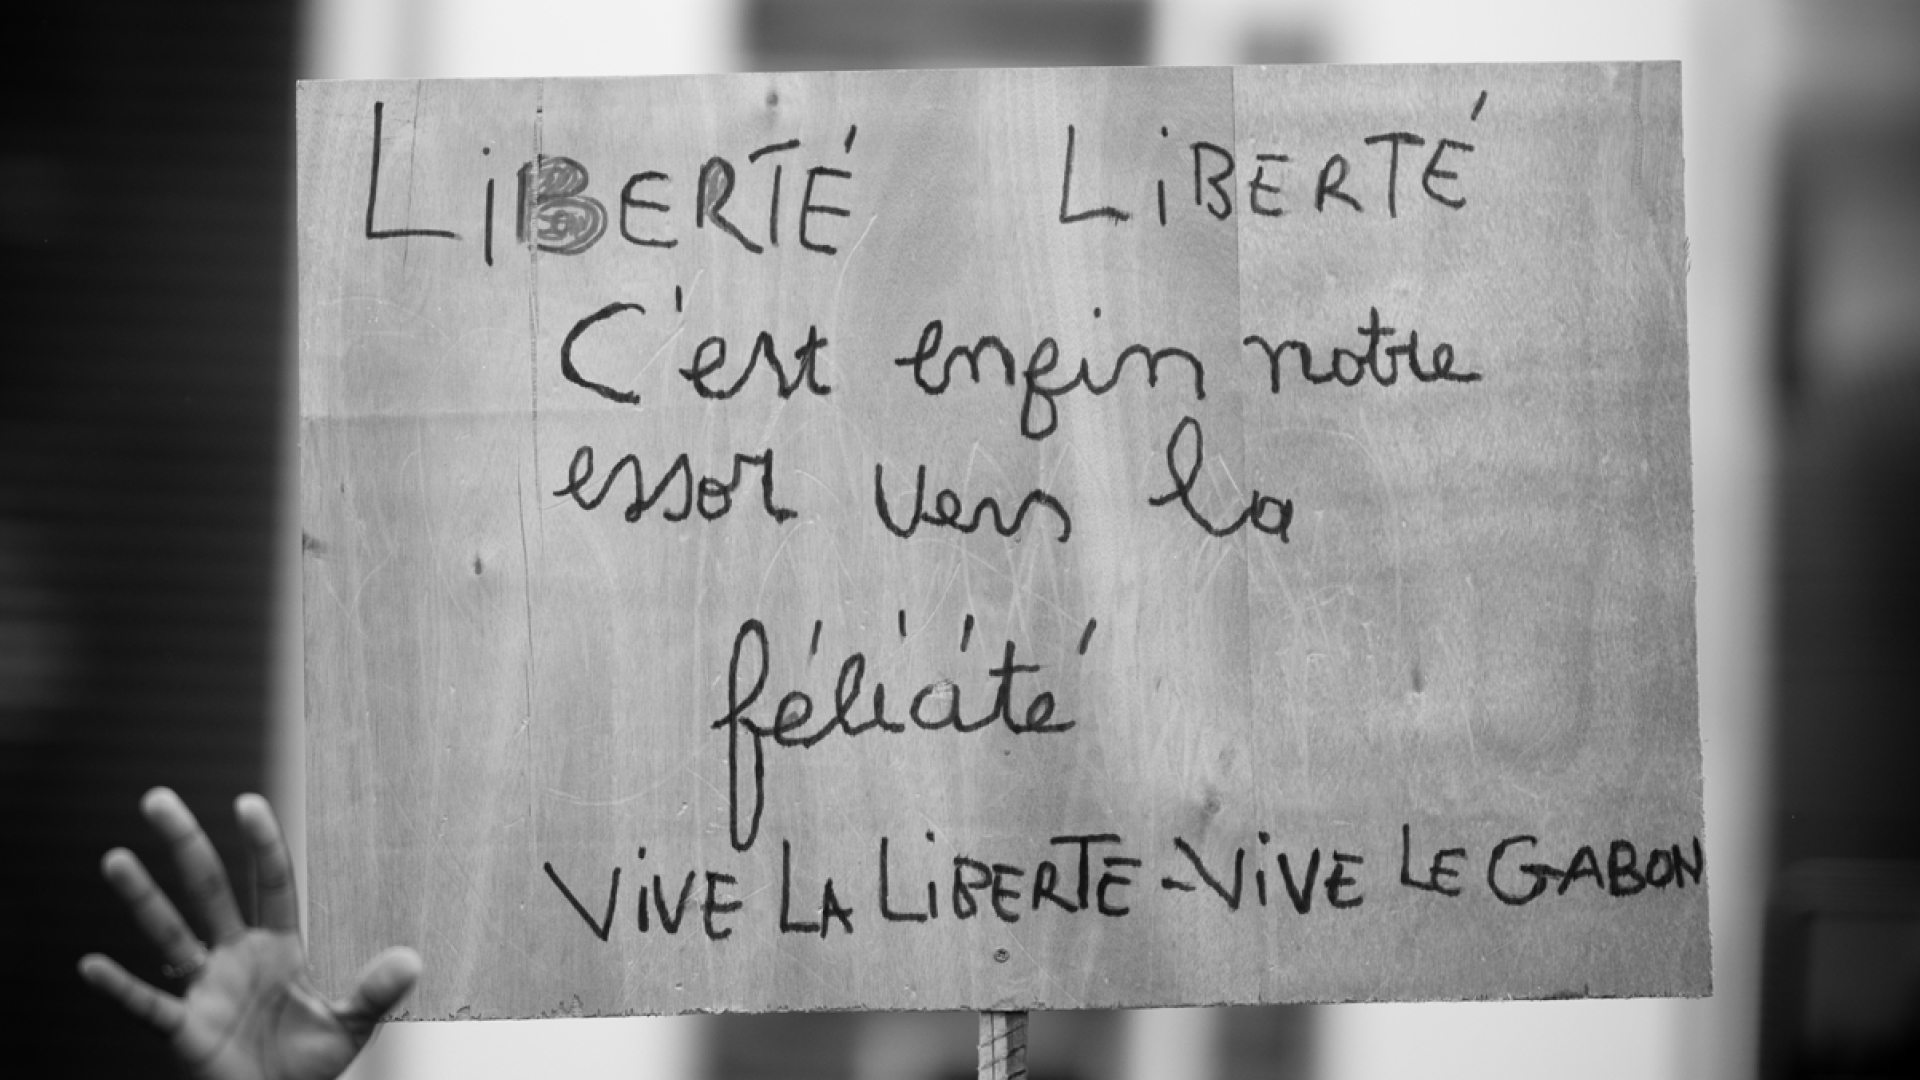 LiBERTÉ LiBERTÉ
C'est enfin notre
essor vers la
félicité
ViVE LA LiBERTE - ViVE LE GABON